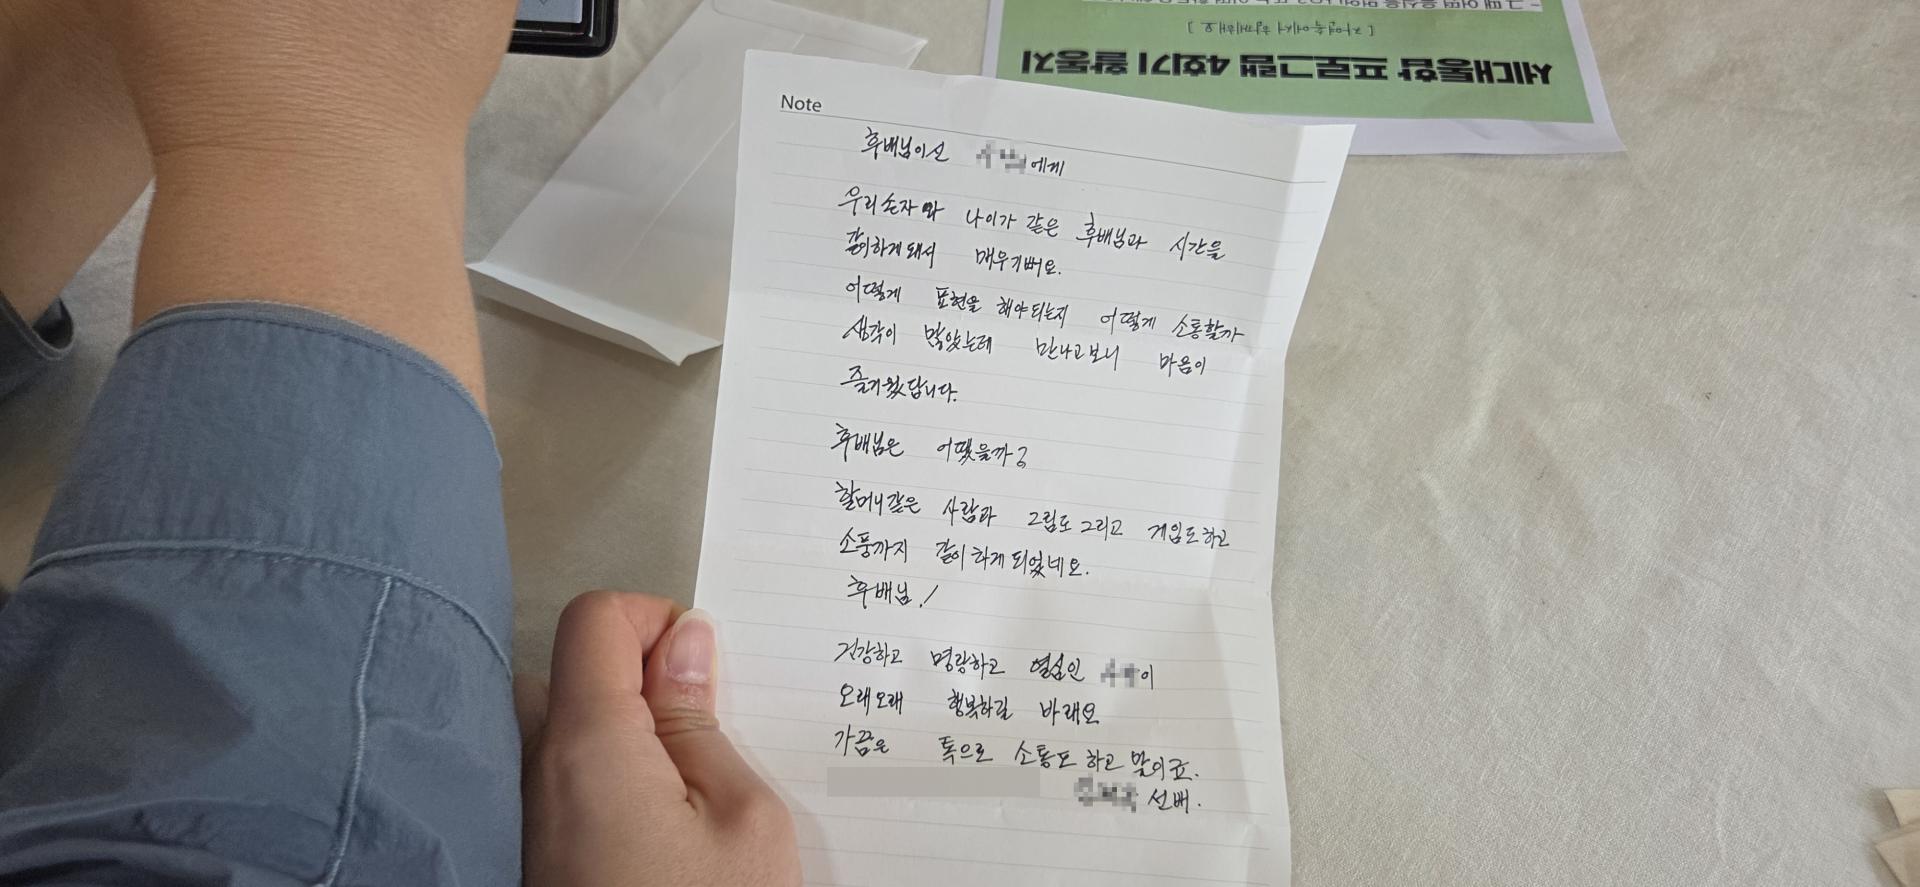 세대통합 프로그램 4회기 활동지
[ 자연속에서 함께해요 ]
Note
후배님이신 에게
우리손자와 나이가 같은 후배님과 시간을
같이하게돼서 매우기뻐요.
어떻게 표현을 해야되는지 어떻게 소통할까
생각이 많았는데 만나고보니 마음이
즐거웠답니다.
후배님은 어땠을까?
할머니같은 사람과 그림도 그리고 게임도하고
소풍까지 같이하게되었네요.
후배님!
건강하고 명랑하고 열심인 이
오래오래 행복하길 바래요
가끔은 톡으로 소통도 하고 말이죠.
선배.